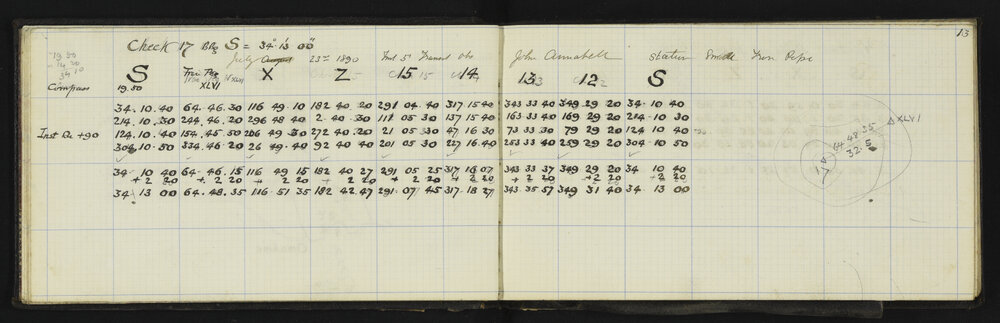 13
Check 17 Brg S = 34° 13' 00"
July August 23rd 1890 Inst 5" Transit Obs John Annabell Station Small Iron Pipe
19.50
34 10
S Trav Peg XLVI X Z 15 14 13 12 S
Compass 19.50
34.10.40 64.46.30 116 49.10 182 40.20 291 04.40 317 15 40 343 33 40 349 29 20 34 10 40
214.10.30 244.46.20 296 48 40 2.40.30 111 05 30 137 15 40 163 33 40 169 29 20 214 10 30
Inst Re +90 124.10.40 154.45.50 206 49.30 272 40.20 21 05 30 47 16 30 73 33 30 79 29 20 124 10 40
304.10.50 334.46.20 26 49.40 92 40 40 201 05 30 227 16 40 253 33 40 259 29 20 304 10 50
34 10 40 64.46.15 116 49 15 182 40 27 291 05 25 317 16 07 343 33 37 349 29 20 34 10 40
+ 2 20 + 2 20 + 2 20 + 2 20 + 2 20 + 2 20 + 2 20 + 2 20 + 2 20
34 13 00 64.48.35 116.51 35 182 42.47 291.07.45 317.18.27 343.35.57 349 31 40 34 13 00
△ XLVI
64 48 35
32.5
17